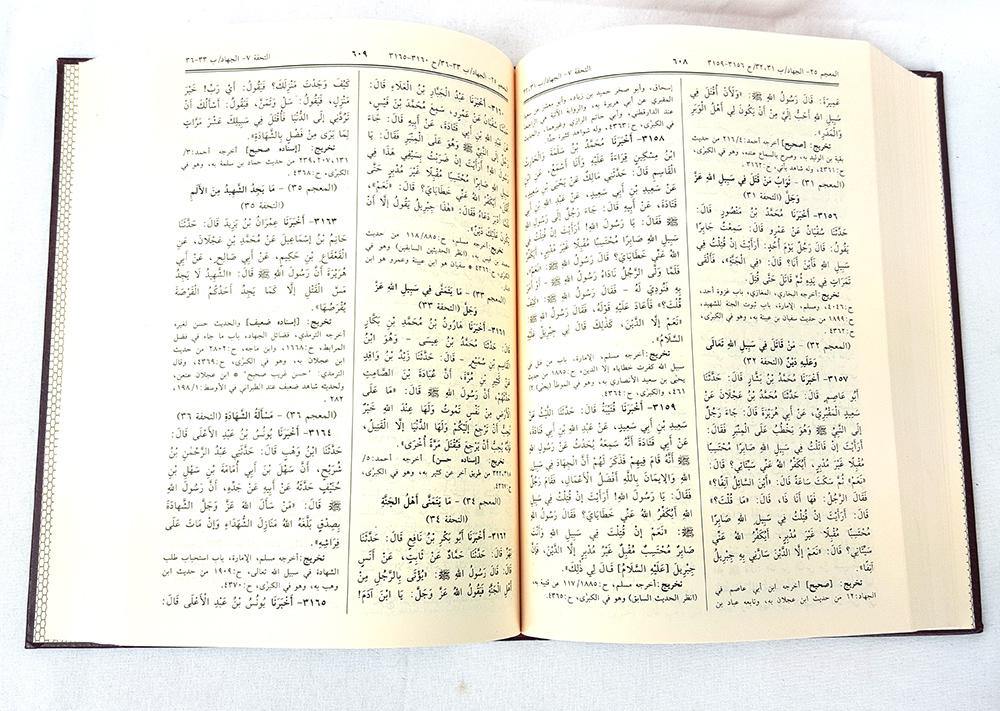 المعجم ٢٥- الجهاد/ب ٣٢،٣١/ح ٣١٥٦-٣١٥٩
٦٠٨
التحفة ٧- الجهاد/ب
عَمِيرَةَ: قَالَ رَسُولُ اللهِ ﷺ: «وَلَأَنْ أُقْتَلَ فِي
سَبِيلِ اللهِ أَحَبُّ إِلَيَّ مِنْ أَنْ يَكُونَ لِي أَهْلُ الْوَبَرِ
وَالْمَدَرِ».
تخريج: [صحيح] أخرجه أحمد: ٢١٦/٤ من حديث
بقية بن الوليد به، وصرح بالسماع عنده، وهو في الكبرى،
ح: ٤٣٦١، وله شاهد يأتي، ح: ٣١٦٢.
(المعجم ٣١) - ثَوَابُ مَنْ قُتِلَ فِي سَبِيلِ اللهِ عَزَّ
وَجَلَّ (التحفة ٣١)
٣١٥٦- أَخْبَرَنَا مُحَمَّدُ بْنُ مَنْصُورٍ قَالَ:
حَدَّثَنَا سُفْيَانُ عَنْ عَمْرٍو قَالَ: سَمِعْتُ جَابِرًا
يَقُولُ: قَالَ رَجُلٌ يَوْمَ أُحُدٍ: أَرَأَيْتَ إِنْ قُتِلْتُ فِي
سَبِيلِ اللهِ فَأَيْنَ أَنَا؟ قَالَ: «فِي الْجَنَّةِ»، فَأَلْقَى
تَمَرَاتٍ فِي يَدِهِ ثُمَّ قَاتَلَ حَتَّى قُتِلَ.
تخريج: أخرجه البخاري، المغازي، باب غزوة أحد،
ح: ٤٠٤٦، ومسلم، الإمارة، باب ثبوت الجنة للشهيد،
ح: ١٨٩٩ من حديث سفيان بن عيينة به، وهو في الكبرى،
ح: ٤٣٦٢.
(المعجم ٣٢) - مَنْ قَاتَلَ فِي سَبِيلِ اللهِ تَعَالَى
وَعَلَيْهِ دَيْنٌ (التحفة ٣٢)
٣١٥٧- أَخْبَرَنَا مُحَمَّدُ بْنُ بَشَّارٍ قَالَ: حَدَّثَنَا
أَبُو عَاصِمٍ قَالَ: حَدَّثَنَا مُحَمَّدُ بْنُ عَجْلَانَ عَنْ
سَعِيدٍ الْمَقْبُرِيِّ، عَنْ أَبِي هُرَيْرَةَ قَالَ: جَاءَ رَجُلٌ
إِلَى النَّبِيِّ ﷺ وَهُوَ يَخْطُبُ عَلَى الْمِنْبَرِ فَقَالَ:
أَرَأَيْتَ إِنْ قَاتَلْتُ فِي سَبِيلِ اللهِ صَابِرًا مُحْتَسِبًا
مُقْبِلًا غَيْرَ مُدْبِرٍ، أَيُكَفِّرُ اللهُ عَنِّي سَيِّئَاتِي؟ قَالَ:
«نَعَمْ» ثُمَّ سَكَتَ سَاعَةً قَالَ: «أَيْنَ السَّائِلُ آنِفًا؟»
فَقَالَ الرَّجُلُ: فَهَا أَنَا ذَا، قَالَ: «مَا قُلْتَ؟»
قَالَ: أَرَأَيْتَ إِنْ قُتِلْتُ فِي سَبِيلِ اللهِ صَابِرًا
مُحْتَسِبًا مُقْبِلًا غَيْرَ مُدْبِرٍ، أَيُكَفِّرُ اللهُ عَنِّي
سَيِّئَاتِي؟ قَالَ: «نَعَمْ إِلَّا الدَّيْنَ سَارَّنِي بِهِ جِبْرِيلُ
آنِفًا».
تخريج: [صحيح] أخرجه ابن أبي عاصم في
الجهاد: ١٢ من حديث ابن عجلان به، وتابعه عباد بن
إسحاق، وأبو صخر حميد بن زياد، وأبو معشر
المقبري عن أبي هريرة به، والرواية الآتية هي
عند الدارقطني، وأبي حاتم الرازي وغيرهما،
في الكبرى، ح: ٤٣٦٣، وله شواهد كثيرة
٣١٥٨- أَخْبَرَنَا مُحَمَّدُ بْنُ سَلَمَةَ وَالْحَارِثُ
ابْنُ مِسْكِينٍ قِرَاءَةً عَلَيْهِ وَأَنَا أَسْمَعُ
الْقَاسِمِ قَالَ: حَدَّثَنِي مَالِكٌ عَنْ يَحْيَى بْنِ
عَنْ سَعِيدِ بْنِ أَبِي سَعِيدٍ، عَنْ عَبْدِ اللهِ بْنِ أَبِي
قَتَادَةَ، عَنْ أَبِيهِ قَالَ: جَاءَ رَجُلٌ إِلَى رَسُولِ اللهِ
ﷺ فَقَالَ: يَا رَسُولَ اللهِ! أَرَأَيْتَ إِنْ قُتِلْتُ فِي
سَبِيلِ اللهِ صَابِرًا مُحْتَسِبًا مُقْبِلًا غَيْرَ مُدْبِرٍ
فَلَمَّا وَلَّى الرَّجُلُ نَادَاهُ رَسُولُ اللهِ ﷺ
بِهِ فَنُودِيَ لَهُ - فَقَالَ رَسُولُ اللهِ ﷺ:
قُلْتَ؟» فَأَعَادَ عَلَيْهِ قَوْلَهُ، فَقَالَ رَسُولُ اللهِ ﷺ:
«نَعَمْ إِلَّا الدَّيْنَ، كَذَلِكَ قَالَ لِي جِبْرِيلُ
السَّلَامُ».
تخريج: أخرجه مسلم، الإمارة، باب من قتل في
سبيل الله كفرت خطاياه إلا الدين، ح: ١٨٨٥ من حديث
يحيى بن سعيد الأنصاري به، وهو في الموطأ (يحيى)
٤٦١، والكبرى، ح: ٤٣٦٤.
٣١٥٩- أَخْبَرَنَا قُتَيْبَةُ قَالَ: حَدَّثَنَا اللَّيْثُ عَنْ
سَعِيدِ بْنِ أَبِي سَعِيدٍ، عَنْ عَبْدِ اللهِ بْنِ أَبِي قَتَادَةَ،
عَنْ أَبِي قَتَادَةَ أَنَّهُ سَمِعَهُ يُحَدِّثُ عَنْ رَسُولِ اللهِ
ﷺ أَنَّهُ قَامَ فِيهِمْ فَذَكَرَ لَهُمْ أَنَّ الْجِهَادَ فِي سَبِيلِ
اللهِ وَالْإِيمَانَ بِاللهِ أَفْضَلُ الْأَعْمَالِ، فَقَامَ رَجُلٌ
فَقَالَ: يَا رَسُولَ اللهِ! أَرَأَيْتَ إِنْ قُتِلْتُ فِي سَبِيلِ
اللهِ أَيُكَفِّرُ اللهُ عَنِّي خَطَايَايَ؟ فَقَالَ رَسُولُ اللهِ
ﷺ: «نَعَمْ إِنْ قُتِلْتَ فِي سَبِيلِ اللهِ وَأَنْتَ
صَابِرٌ مُحْتَسِبٌ مُقْبِلٌ غَيْرُ مُدْبِرٍ إِلَّا الدَّيْنَ، فَإِنَّ
جِبْرِيلَ [عَلَيْهِ السَّلَامُ] قَالَ لِي ذَلِكَ».
تخريج: أخرجه مسلم، ح: ١١٧/١٨٨٥ عن قتيبة به،
(انظر الحديث السابق) وهو في الكبرى، ح: ٤٣٦٥.
٢٥- الجهاد/ب ٣٣-٣٦/ح ٣١٦٠-٣١٦٥
٦٠٩
التحفة ٧- الجهاد/ب ٣٣-٣٦
٣١٦٠- أَخْبَرَنَا عَبْدُ الْجَبَّارِ بْنُ الْعَلَاءِ قَالَ:
سُفْيَانُ عَنْ عَمْرٍو، سَمِعَ مُحَمَّدَ بْنَ قَيْسٍ،
بْنِ أَبِي قَتَادَةَ، عَنْ أَبِيهِ قَالَ: جَاءَ
إِلَى النَّبِيِّ ﷺ وَهُوَ عَلَى الْمِنْبَرِ فَقَالَ: يَا
اللهِ! أَرَأَيْتَ إِنْ ضَرَبْتُ بِسَيْفِي هَذَا فِي
اللهِ صَابِرًا مُحْتَسِبًا مُقْبِلًا غَيْرَ مُدْبِرٍ حَتَّى
اللهُ عَنِّي خَطَايَايَ؟ قَالَ: «نَعَمْ»،
أَدْبَرَ دَعَاهُ فَقَالَ: «هَذَا جِبْرِيلُ يَقُولُ إِلَّا أَنْ
يَكُونَ عَلَيْكَ دَيْنٌ».
تخريج: أخرجه مسلم، ح: ١١٨/١٨٨٥ من حديث
بن قيس به، (انظر الحديثين السابقين) وهو في الكبرى،
ح: ٤٣٦٦ * سفيان هو ابن عيينة وعمرو هو ابن
(المعجم ٣٣) - مَا يَتَمَنَّى فِي سَبِيلِ اللهِ عَزَّ
وَجَلَّ (التحفة ٣٣)
٣١٦١- أَخْبَرَنَا هَارُونُ بْنُ مُحَمَّدِ بْنِ بَكَّارٍ
قَالَ: حَدَّثَنَا مُحَمَّدُ بْنُ عِيسَى - وَهُوَ ابْنُ
الْقَاسِمِ بْنِ سُمَيْعٍ - قَالَ: حَدَّثَنَا زَيْدُ بْنُ وَاقِدٍ
عَنْ كَثِيرِ بْنِ مُرَّةَ، أَنَّ عُبَادَةَ بْنَ الصَّامِتِ
حَدَّثَهُمْ، أَنَّ رَسُولَ اللهِ ﷺ قَالَ: «مَا عَلَى
الْأَرْضِ مِنْ نَفْسٍ تَمُوتُ وَلَهَا عِنْدَ اللهِ خَيْرٌ
تُحِبُّ أَنْ تَرْجِعَ إِلَيْكُمْ وَلَهَا الدُّنْيَا إِلَّا الْقَتِيلُ،
فَإِنَّهُ يُحِبُّ أَنْ يَرْجِعَ فَيُقْتَلَ مَرَّةً أُخْرَى».
تخريج: [إسناده حسن] أخرجه أحمد: ٥/
٣١٨، ٣٢٢ من طريق آخر عن كثير به، وهو في الكبرى،
ح: ٤٣٦٧.
(المعجم ٣٤) - مَا يَتَمَنَّى أَهْلُ الْجَنَّةِ
(التحفة ٣٤)
٣١٦٢- أَخْبَرَنَا أَبُو بَكْرِ بْنُ نَافِعٍ قَالَ: حَدَّثَنَا
بَهْزٌ قَالَ: حَدَّثَنَا حَمَّادٌ عَنْ ثَابِتٍ، عَنْ أَنَسٍ
قَالَ: قَالَ رَسُولُ اللهِ ﷺ: «يُؤْتَى بِالرَّجُلِ مِنْ
أَهْلِ الْجَنَّةِ فَيَقُولُ اللهُ عَزَّ وَجَلَّ: يَا ابْنَ آدَمَ!
كَيْفَ وَجَدْتَ مَنْزِلَكَ؟ فَيَقُولُ: أَيْ رَبِّ! خَيْرَ
مَنْزِلٍ، فَيَقُولُ: سَلْ وَتَمَنَّ، فَيَقُولُ: أَسْأَلُكَ أَنْ
تَرُدَّنِي إِلَى الدُّنْيَا فَأُقْتَلَ فِي سَبِيلِكَ عَشْرَ مَرَّاتٍ
لِمَا يَرَى مِنْ فَضْلِ بِالشَّهَادَةِ».
تخريج: [إسناده صحيح] أخرجه أحمد: ٣/
١٣١، ٢٠٧، ٢٣٩ من حديث حماد بن سلمة به، وهو في
الكبرى، ح: ٤٣٦٨.
(المعجم ٣٥) - مَا يَجِدُ الشَّهِيدُ مِنَ الْأَلَمِ
(التحفة ٣٥)
٣١٦٣- أَخْبَرَنَا عِمْرَانُ بْنُ يَزِيدَ قَالَ: حَدَّثَنَا
حَاتِمُ بْنُ إِسْمَاعِيلَ عَنْ مُحَمَّدِ بْنِ عَجْلَانَ، عَنِ
الْقَعْقَاعِ بْنِ حَكِيمٍ، عَنْ أَبِي صَالِحٍ، عَنْ أَبِي
هُرَيْرَةَ أَنَّ رَسُولَ اللهِ ﷺ قَالَ: «الشَّهِيدُ لَا يَجِدُ
مَسَّ الْقَتْلِ إِلَّا كَمَا يَجِدُ أَحَدُكُمُ الْقَرْصَةَ
يُقْرَصُهَا».
تخريج: [إسناده ضعيف] والحديث حسن لغيره،
أخرجه الترمذي، فضائل الجهاد، باب ما جاء في فضل
المرابط، ح: ١٦٦٨، وابن ماجه، ح: ٢٨٠٢ من حديث
ابن عجلان به، وهو في الكبرى، ح: ٤٣٦٩، وقال
الترمذي: "حسن غريب صحيح" * ابن عجلان عنعن،
ولحديثه شاهد ضعيف عند الطبراني في الأوسط: ١٩٨/١،
٢٨٢
(المعجم ٣٦) - مَسْأَلَةُ الشَّهَادَةِ (التحفة ٣٦)
٣١٦٤- أَخْبَرَنَا يُونُسُ بْنُ عَبْدِ الْأَعْلَى قَالَ:
حَدَّثَنَا ابْنُ وَهْبٍ قَالَ: حَدَّثَنِي عَبْدُ الرَّحْمَنِ بْنُ
شُرَيْحٍ، أَنَّ سَهْلَ بْنَ أَبِي أُمَامَةَ بْنِ سَهْلِ بْنِ
حُنَيْفٍ حَدَّثَهُ عَنْ أَبِيهِ عَنْ جَدِّهِ، أَنَّ رَسُولَ اللهِ
ﷺ قَالَ: «مَنْ سَأَلَ اللهَ عَزَّ وَجَلَّ الشَّهَادَةَ
بِصِدْقٍ بَلَّغَهُ اللهُ مَنَازِلَ الشُّهَدَاءِ وَإِنْ مَاتَ عَلَى
فِرَاشِهِ».
تخريج: أخرجه مسلم، الإمارة، باب استحباب طلب
الشهادة في سبيل الله تعالى، ح: ١٩٠٩ من حديث ابن
وهب به، وهو في الكبرى، ح: ٤٣٧٠.
٣١٦٥- أَخْبَرَنَا يُونُسُ بْنُ عَبْدِ الْأَعْلَى قَالَ: